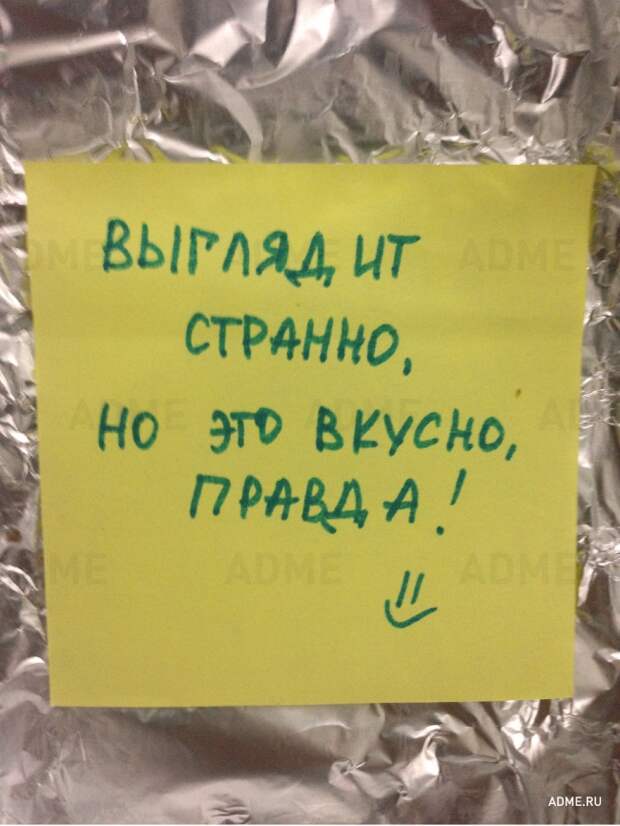 ВЫГЛЯДИТ
СТРАННО,
НО ЭТО ВКУСНО,
ПРАВДА!
ADME
ADME
ADME
ADME
ADME
ADME
ADME
ADME.RU